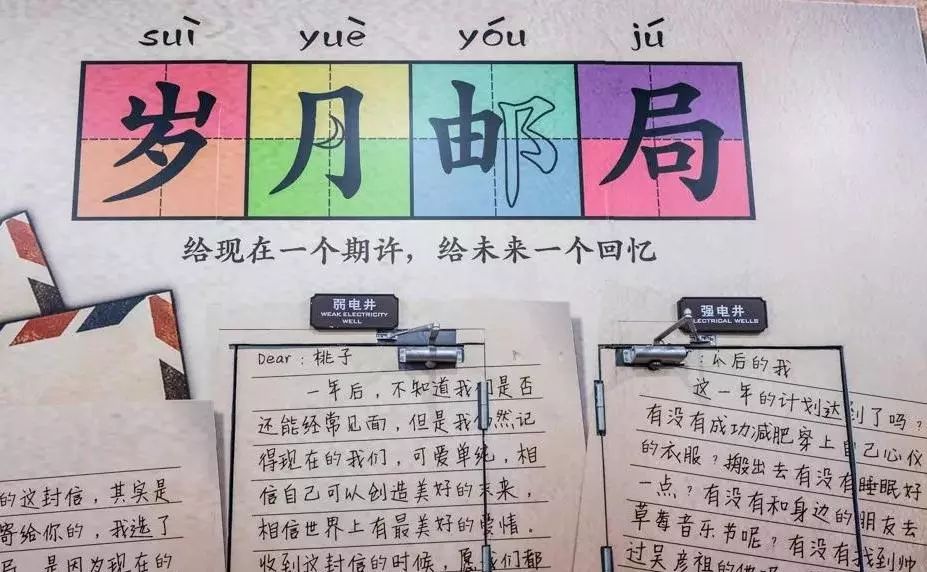 suì yuè yóu jú
岁月邮局
给现在一个期许，给未来一个回忆
弱电井
WEAK ELECTRICITY
WELL
强电井
ELECTRICAL WELLS
Dear：桃子
一年后，不知道我们是否
还能经常见面，但是我仍然记
得现在的我们，可爱单纯，相
信自己可以创造美好的未来，
相信世界上有最美好的爱情。
收到这封信的时候，愿我们都
：以后的我
这一年的计划达到了吗？
有没有成功减肥穿上自己心仪
的衣服？搬出去有没有睡眠好
一点？有没有和身边的朋友去
草莓音乐节呢？有没有找到帅
过吴彦祖的他呢
的这封信，其实是
寄给你的，我选了
是因为现在的